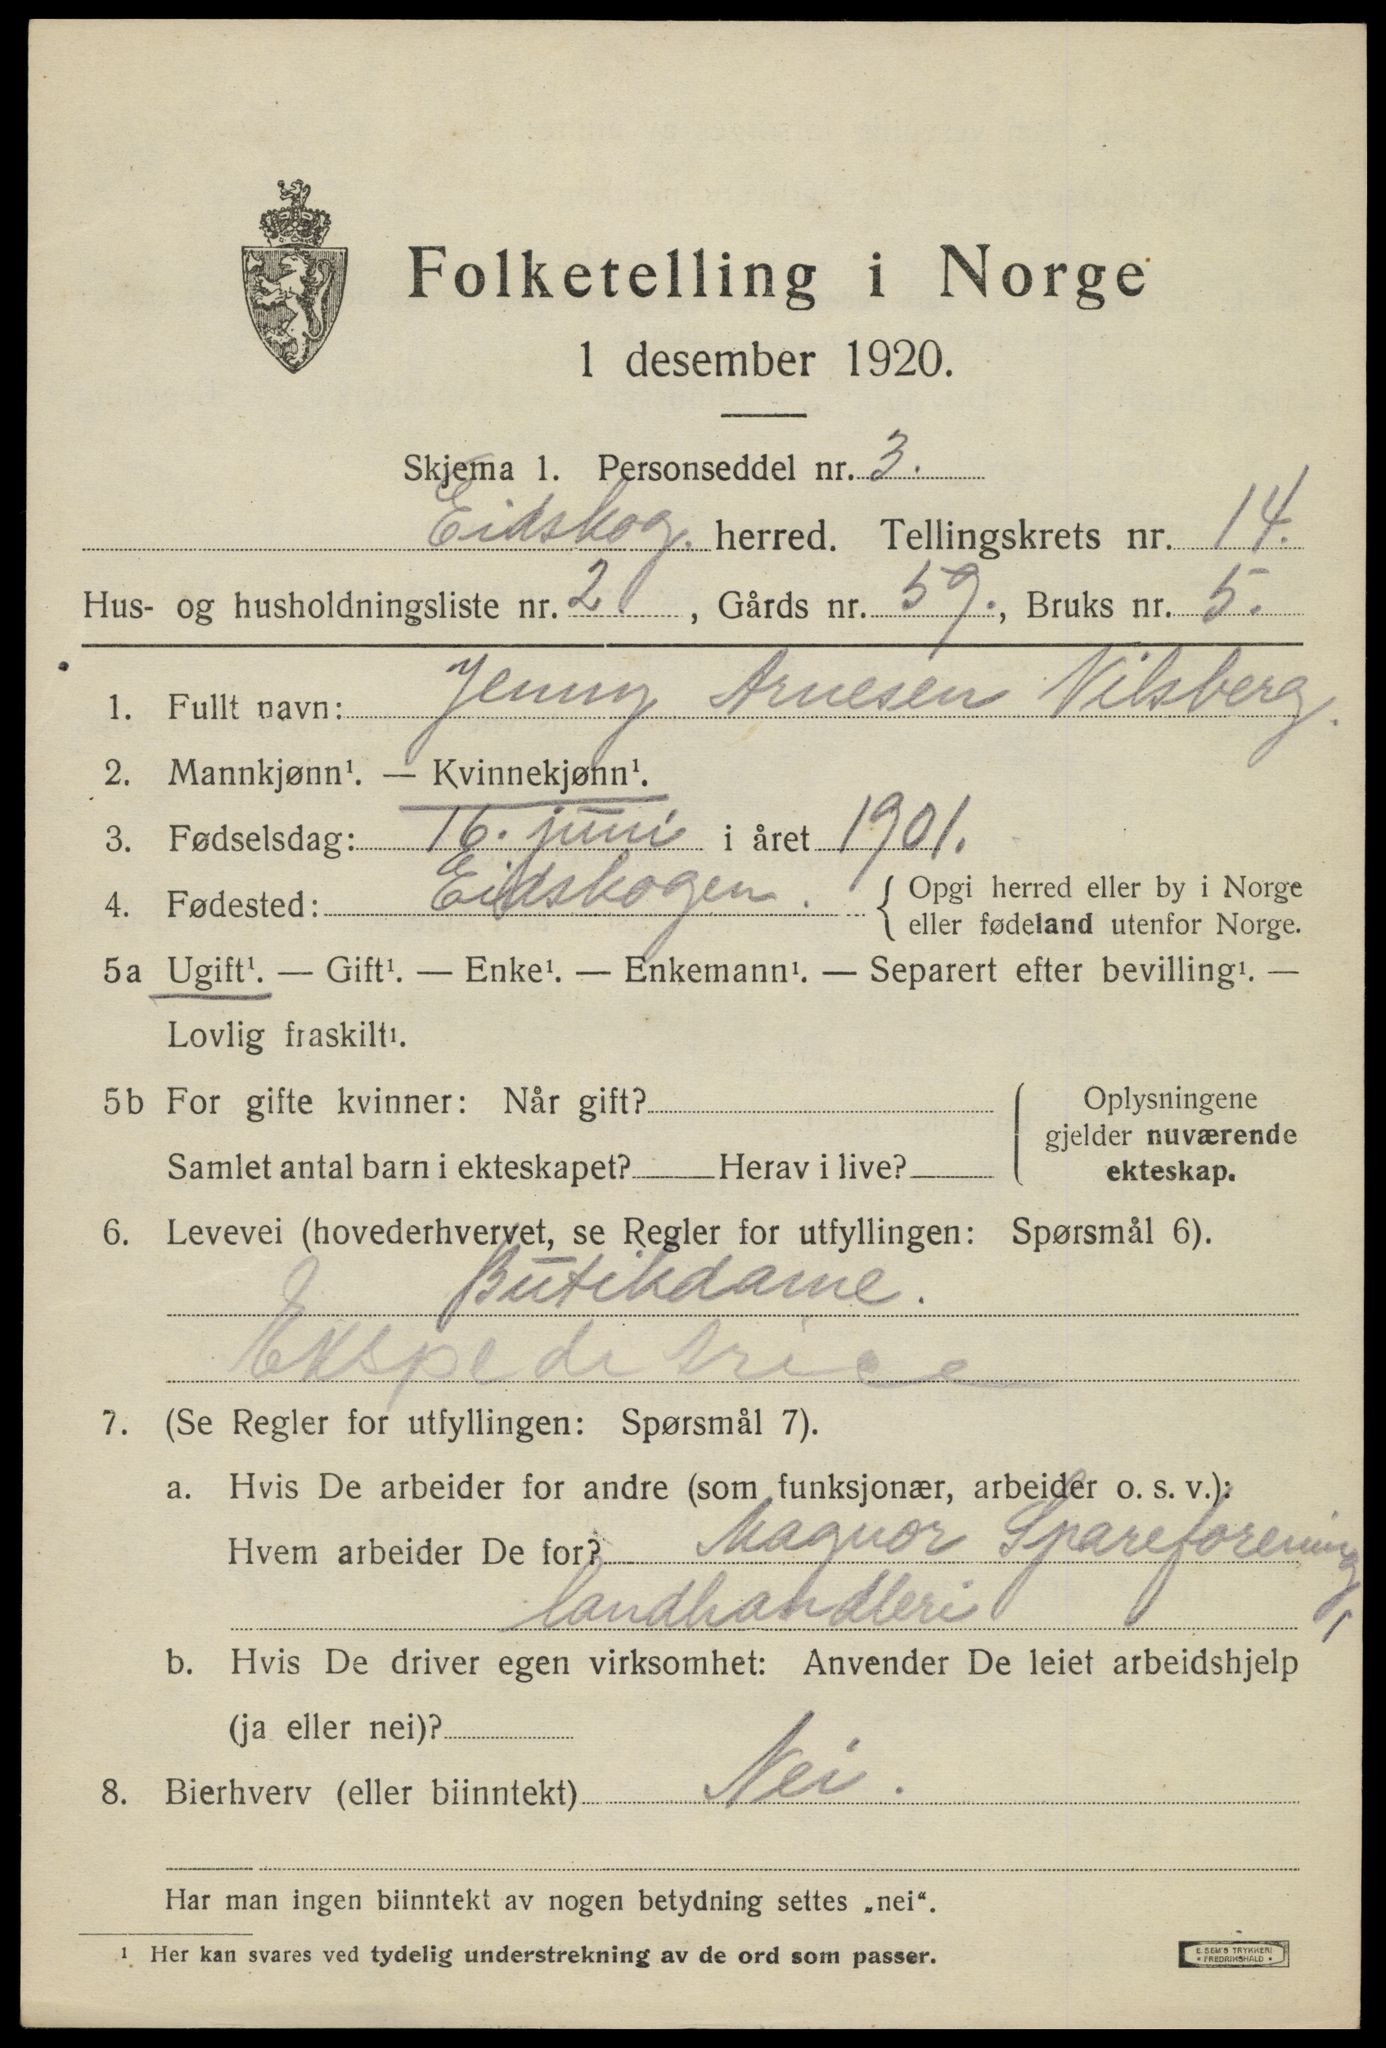 Folketelling i Norge
1 desember 1920.
Skjema 1. Personseddel nr. 3.
Eidskog. herred. Tellingskrets nr. 14.
Hus- og husholdningsliste nr. 2, Gårds nr. 59., Bruks nr. 5.
1. Fullt navn: Jenny Arnesen Vilsberg.
2. Mannkjønn¹. — Kvinnekjønn¹.
3. Fødselsdag: 16. juni i året 1901.
4. Fødested: Eidskogen. { Opgi herred eller by i Norge
eller fødeland utenfor Norge.
5a Ugift¹. — Gift¹. — Enke¹. — Enkemann¹. — Separert efter bevilling¹. —
Lovlig fraskilt¹.
5b For gifte kvinner: Når gift?
Samlet antal barn i ekteskapet? Herav i live?
Oplysningene
gjelder nuværende
ekteskap.
6. Levevei (hovederhvervet, se Regler for utfyllingen: Spørsmål 6).
Butikdame.
Ekspeditrice
7. (Se Regler for utfyllingen: Spørsmål 7).
a. Hvis De arbeider for andre (som funksjonær, arbeider o. s. v.):
Hvem arbeider De for? Magnor Spareforening
landhandleri
b. Hvis De driver egen virksomhet: Anvender De leiet arbeidshjelp
(ja eller nei)?
8. Bierhverv (eller biinntekt) Nei.
Har man ingen biinntekt av nogen betydning settes „nei“.
¹ Her kan svares ved tydelig understrekning av de ord som passer.
E. SEM'S TRYKKERI
• FREDRIKSHALD •